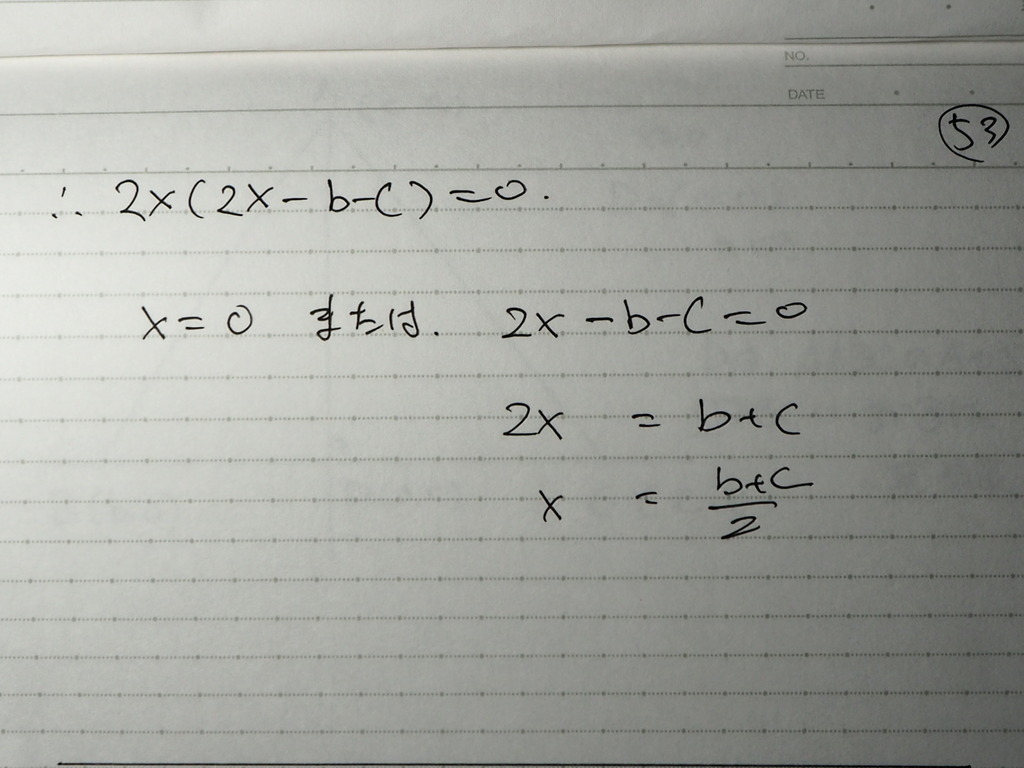 NO.
DATE
53
∴ 2x(2x-b-c)=0.
x=0 または. 2x-b-c=0
2x = b+c
x = \frac{b+c}{2}